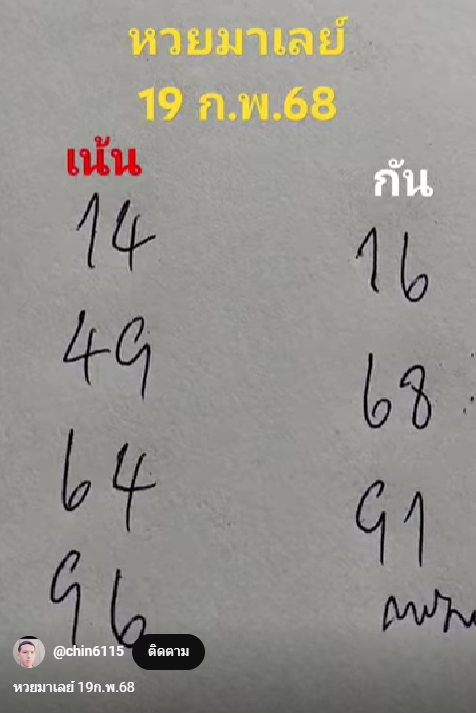 หวยมาเลย์
19 ก.พ.68
เน้น
กัน
14
16
49
68
64
91
96
@chin6115
ติดตาม
หวยมาเลย์ 19ก.พ.68